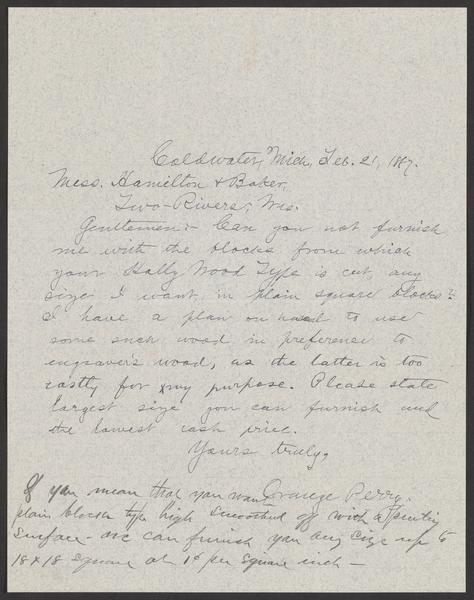 Coldwater, Mich., Feb. 21, 1887.
Mess. Hamilton & Baker,
Two-Rivers, Wis.
Gentlemen:- Can you not furnish
me with the blocks from which
your Holly Wood Type is cut, any
size I want, in plain square blocks?
I have a plan on hand to use
some such wood in preference to
engraver's wood, as the latter is too
costly for my purpose. Please state
largest size you can furnish and
the lowest cash price.
Yours truly,
Orange Perry.
If you mean that you want
plain blocks type high smoothed off with a printing
surface - we can furnish you any size up to
18 x 18 square at 1¢ per square inch -